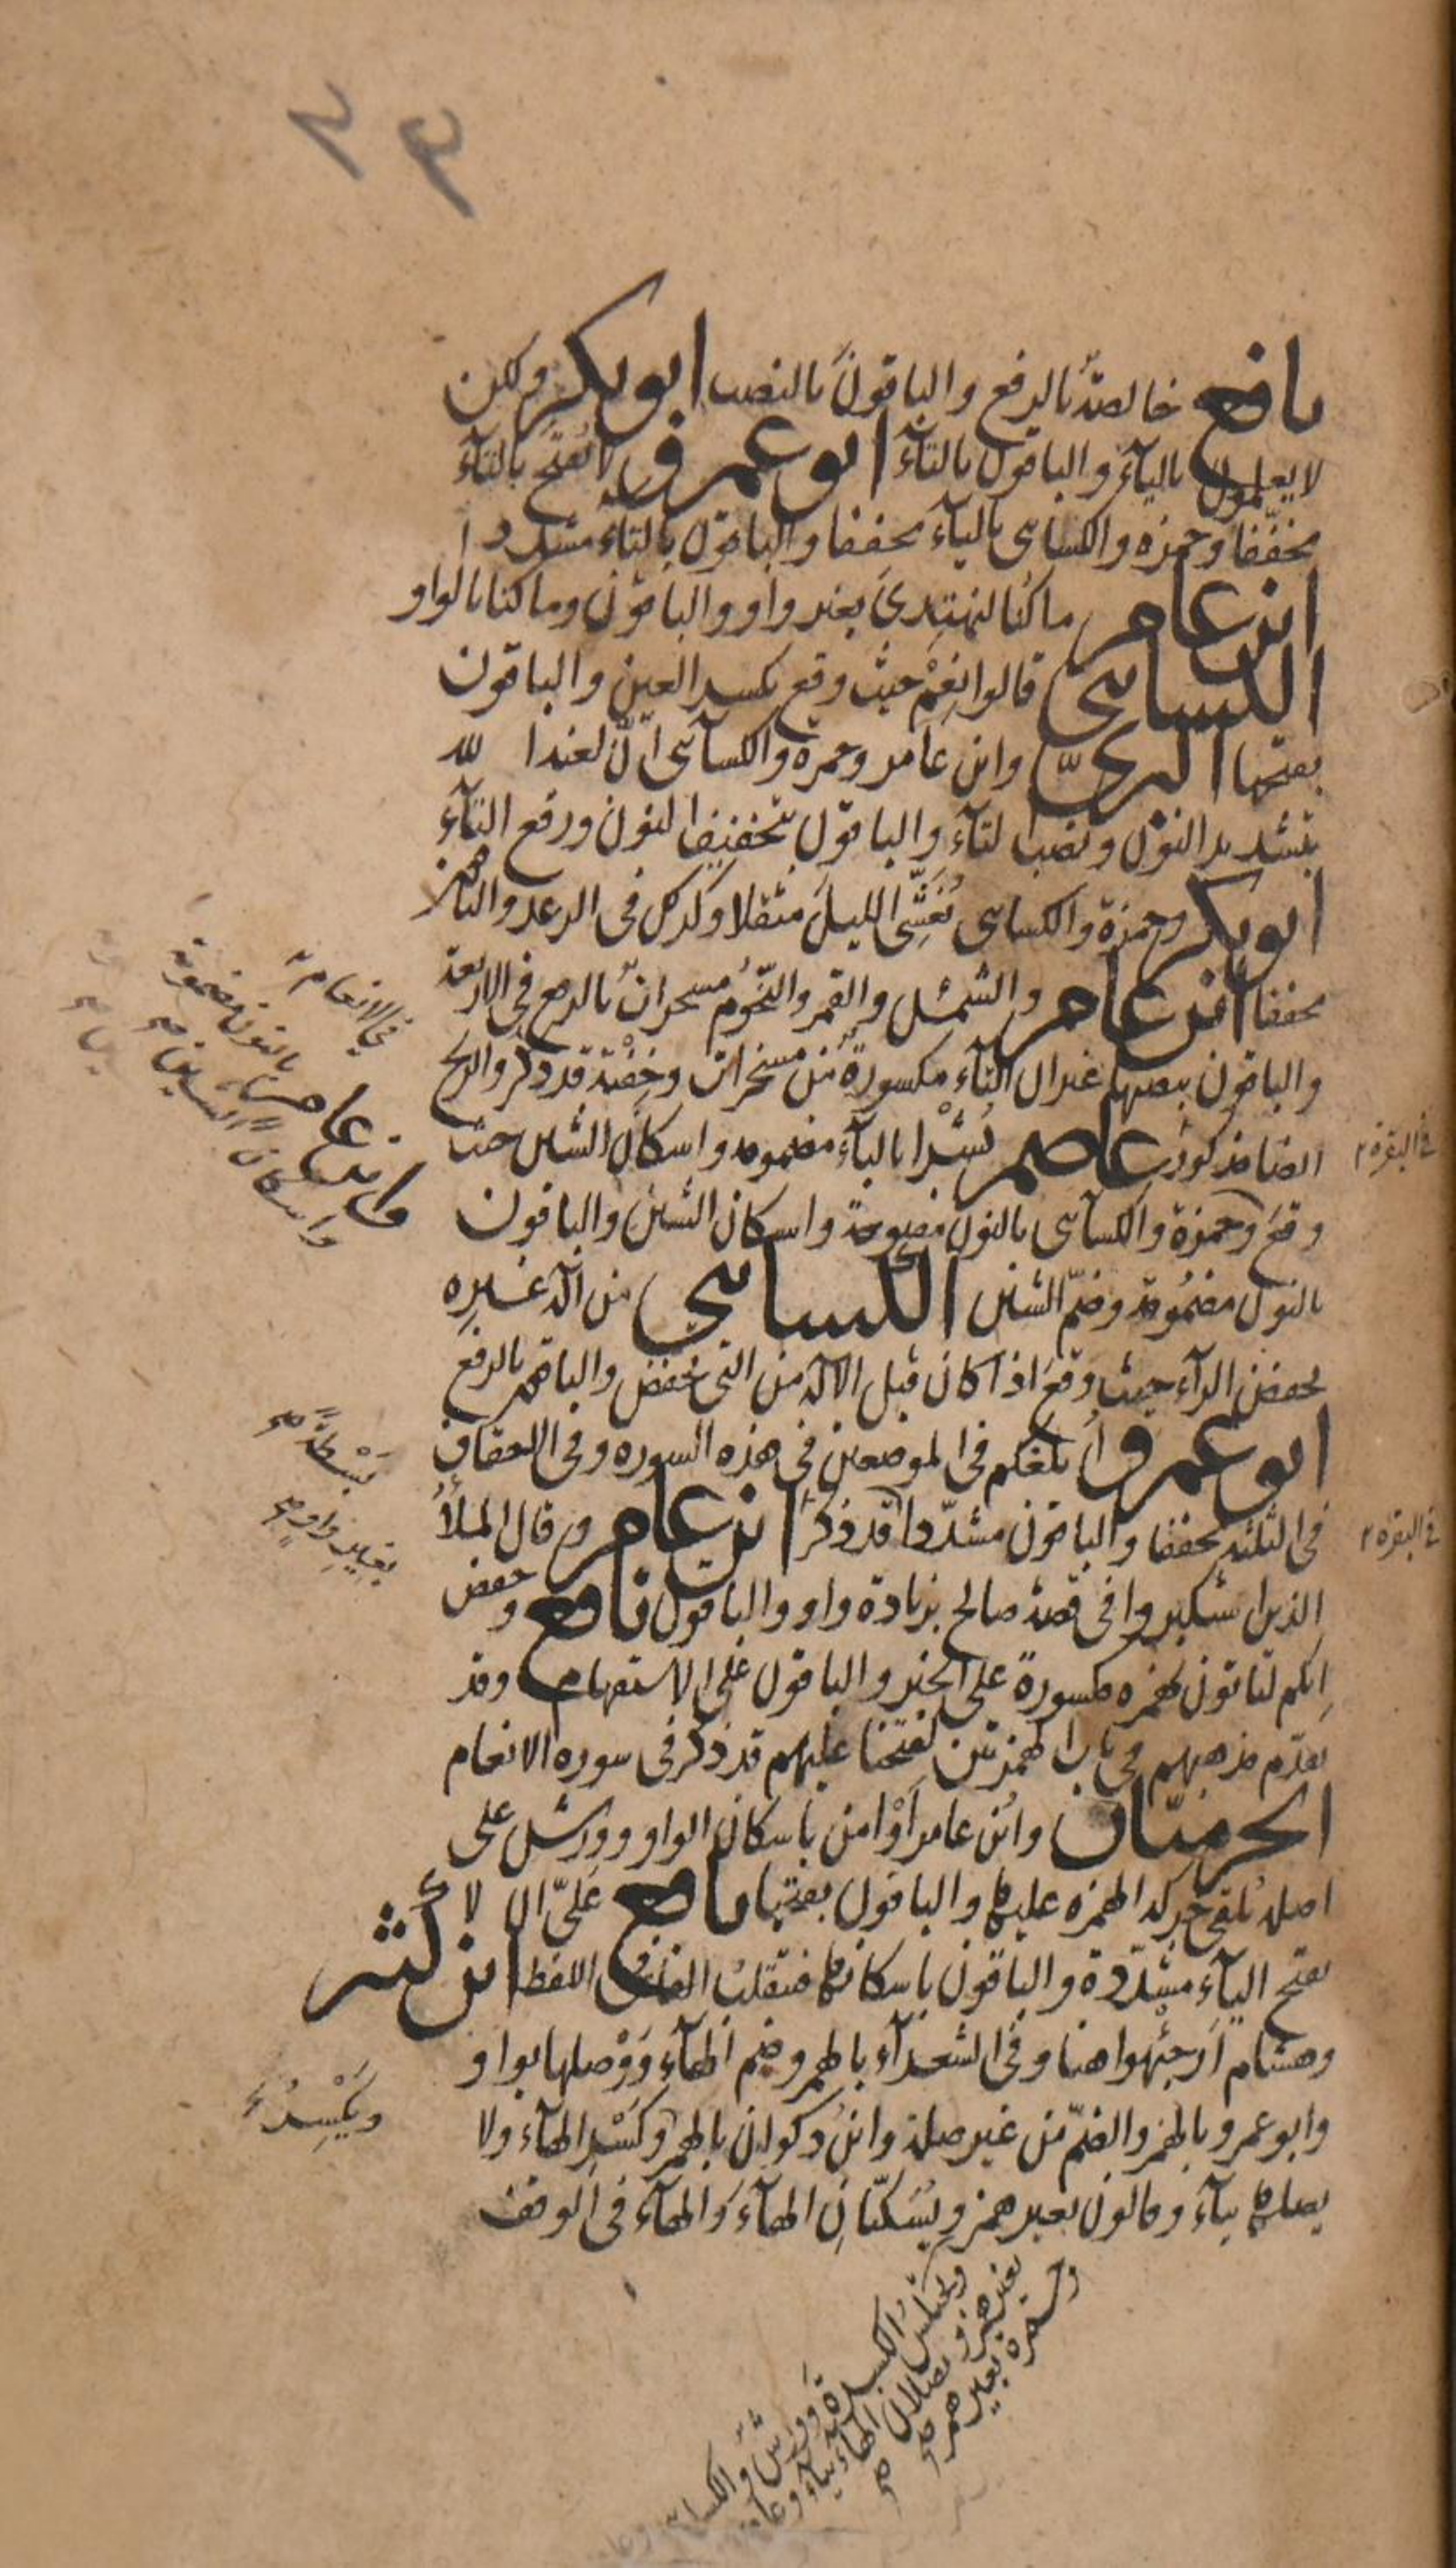 ٢٣
نافع خالصةٌ بالرفع والباقون بالنصب ابو بكر ولكن
لا يعلمون بالياء والباقون بالتاء ابو عمرو لا تفتح بالتاء
مخففا وحمزه والكسائى بالياء مخففا والباقون بالتاء مشددا
ابن عامر ما كنا لنهتدى بغير واو والباقون وما كنا بالواو
الكسائى قالوا نعِمْ حيث وقع بكسر العين والباقون
بفتحها البزىّ وابن عامر وحمزة والكسآئى انّ لعنة الله
بتشديد النون ونصب التاء والباقون بتخفيف النون ورفع التآء
ابو بكر وحمزة والكسائى يُغَشِّى الليلَ مثقلا وكذلك فى الرعد والباقون
مخففا ابن عامر والشمسُ والقمرُ والنجومُ مسخراتٌ بالرفع فى الاربعة
والباقون بنصبها غير ان التآء مكسورةٌ من مسخرات وخفية قد ذكر والريح
ايضا مذكور عاصم بُشْرا بالبآء مضمومه واسكان الشين حيث
وقع وحمزة والكسآئى بالنون مفتوحة واسكان الشين والباقون
بالنون مضمُومة وضمّ الشين الكسائي من الَهٍ غيرِه
بخفض الرآء حيث وقع اذا كان قبل الاله من التى تخفض والباقون بالرفع
ابو عمرو اُبلغكم فى الموضعين فى هذه السوره وفى الاحقاف
فى الثلثة مخففا والباقون مشدّدا قد ذكر ابن عامر وقال الملأُ
الذين استكبروا فى قصة صالح بزيادة واو والباقون نافع وحفص
اِنكم لتاتون بهمزه مكسورة على الخبر والباقون على الاستفهام وقد
تقدّم مذهبهم فى باب الهمزتين لفتحنا عليهم قد ذكر فى سوره الانعام
الحرميّان وابن عامر اَوْ امن باسكان الواو وورش على
اصله يُلقى حركة الهمزه عليها والباقون بفتحها نافع علىّ ان لا
بفتح اليآء مشدّدة والباقون باسكانها فتقلب الفا فى اللفظ ابن كثير
وهشام اَرجئهوا هنا وفى الشعرآء بالهمز وضم الهآء ووَصلها بواو
وابو عمرو بالهمز والضمّ من غير صلة وابن ذكوان بالهمز وكَسْر الهآء ولا
يصلها بيآء وقالون بغير همز ويُسَكّنانِ الهآءَ والهآء فى الوقف
في الانعام
وابن عامر بالنون مضمومة
واسكان الشين صح
في البقرة
بَسْطةً صح
بغير واو صح
في البقرة
ويَكْسِرُ
ويختلس الكسرة وورش والكسائى
بغير همز ويصلان الهاء بياء وعاصم
وحمزه بغير همز صح